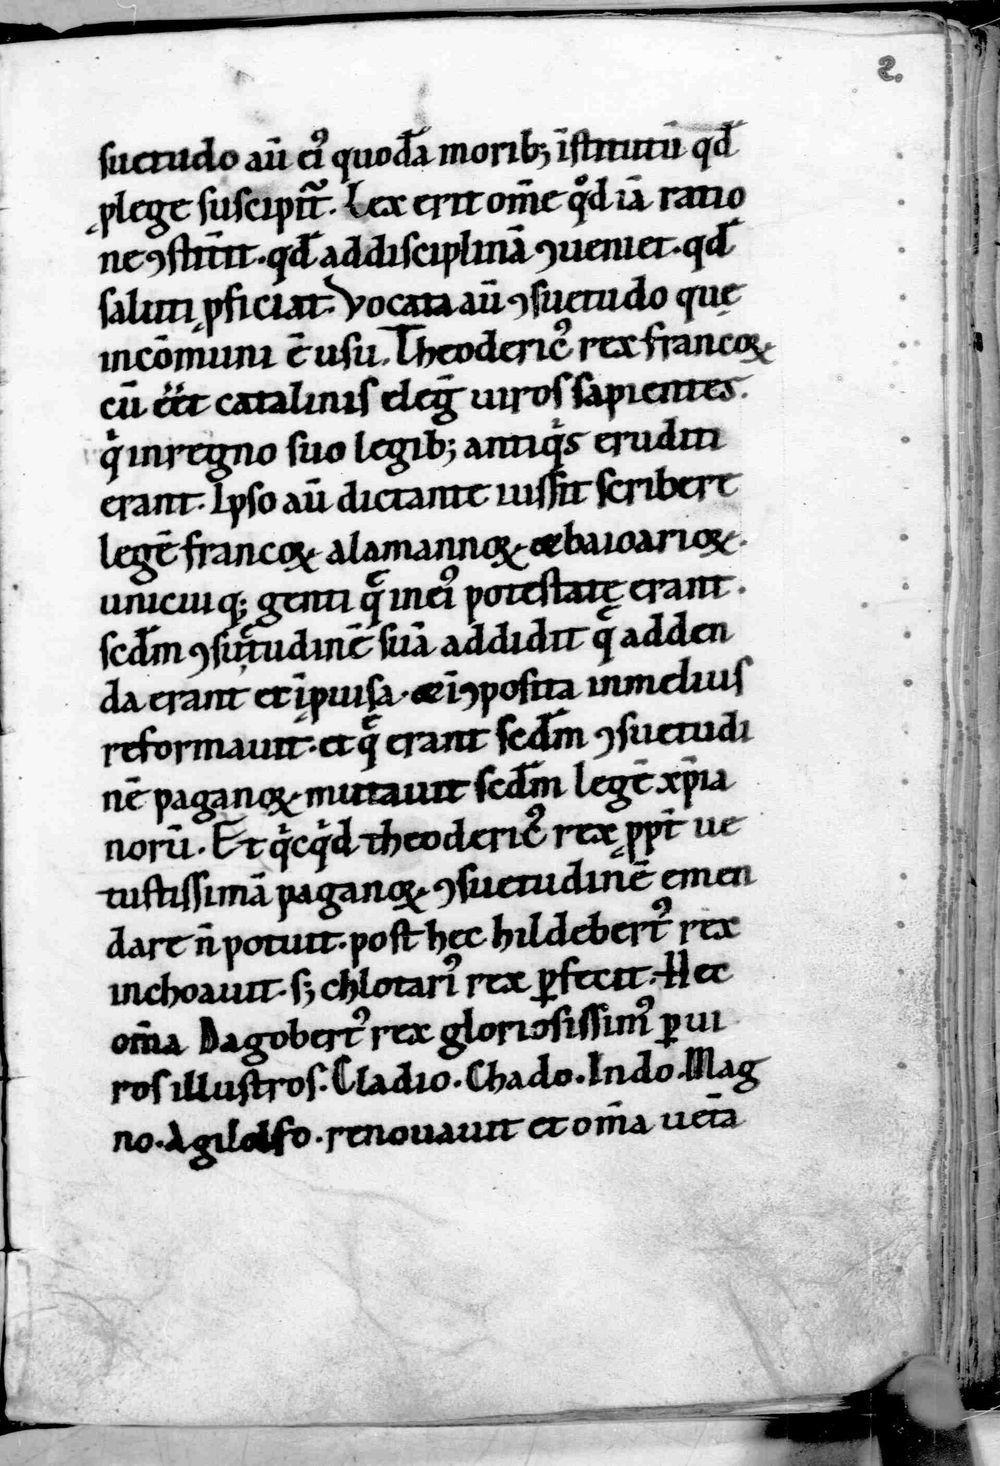 2.
suetudo aū ei᷒ quodā moribꝫ īstitutū qđ
ꝓlege suscipit᷑. Lex erit om̄e qͦd iā ratio
ne ꝯstitīt. qđ addisciplinā ꝯueniet. qđ
saluti ꝓficiat. Vocata aū ꝯsuetudo quę
incōmuni ē usu. Theoderic᷒ rex francoꝝ
cū eēt catalinis elegͥ uiros sapientes.
qͥ inregno suo legibꝫ antiqͥs eruditi
erant. Ipso aū dictante iussit scribere
legē francoꝝ alamannoꝝ et baioarioꝝ.
unicuiqꝫ genti qͣ inei᷒ potestatę erant.
scđm ꝯsuetudinē suā addidit qͣ adden
da erant et īꝓuisa. et īꝯposita inmelius
reformauit. et qͣ erant scđm ꝯsuetudi
nē paganoꝝ mutauit scđm legē xp̄ia
norū. Et qͥcqͥd theoderic᷒ rex ꝓpt̄ ue
tustissimā paganoꝝ ꝯsuetudinē emen
dare n̄ potuit. post hec hildebert᷒ rex
inchoauit. sꝫ chlotari᷒ rex ꝑfecit. Hec
om̄a Dagobert᷒ rex gloriosissim᷒ ꝑ ui
ros illustros. Cladio. Chado. Indo. Mag
no. Agilolfo. renouauit et om̄a uet̄a